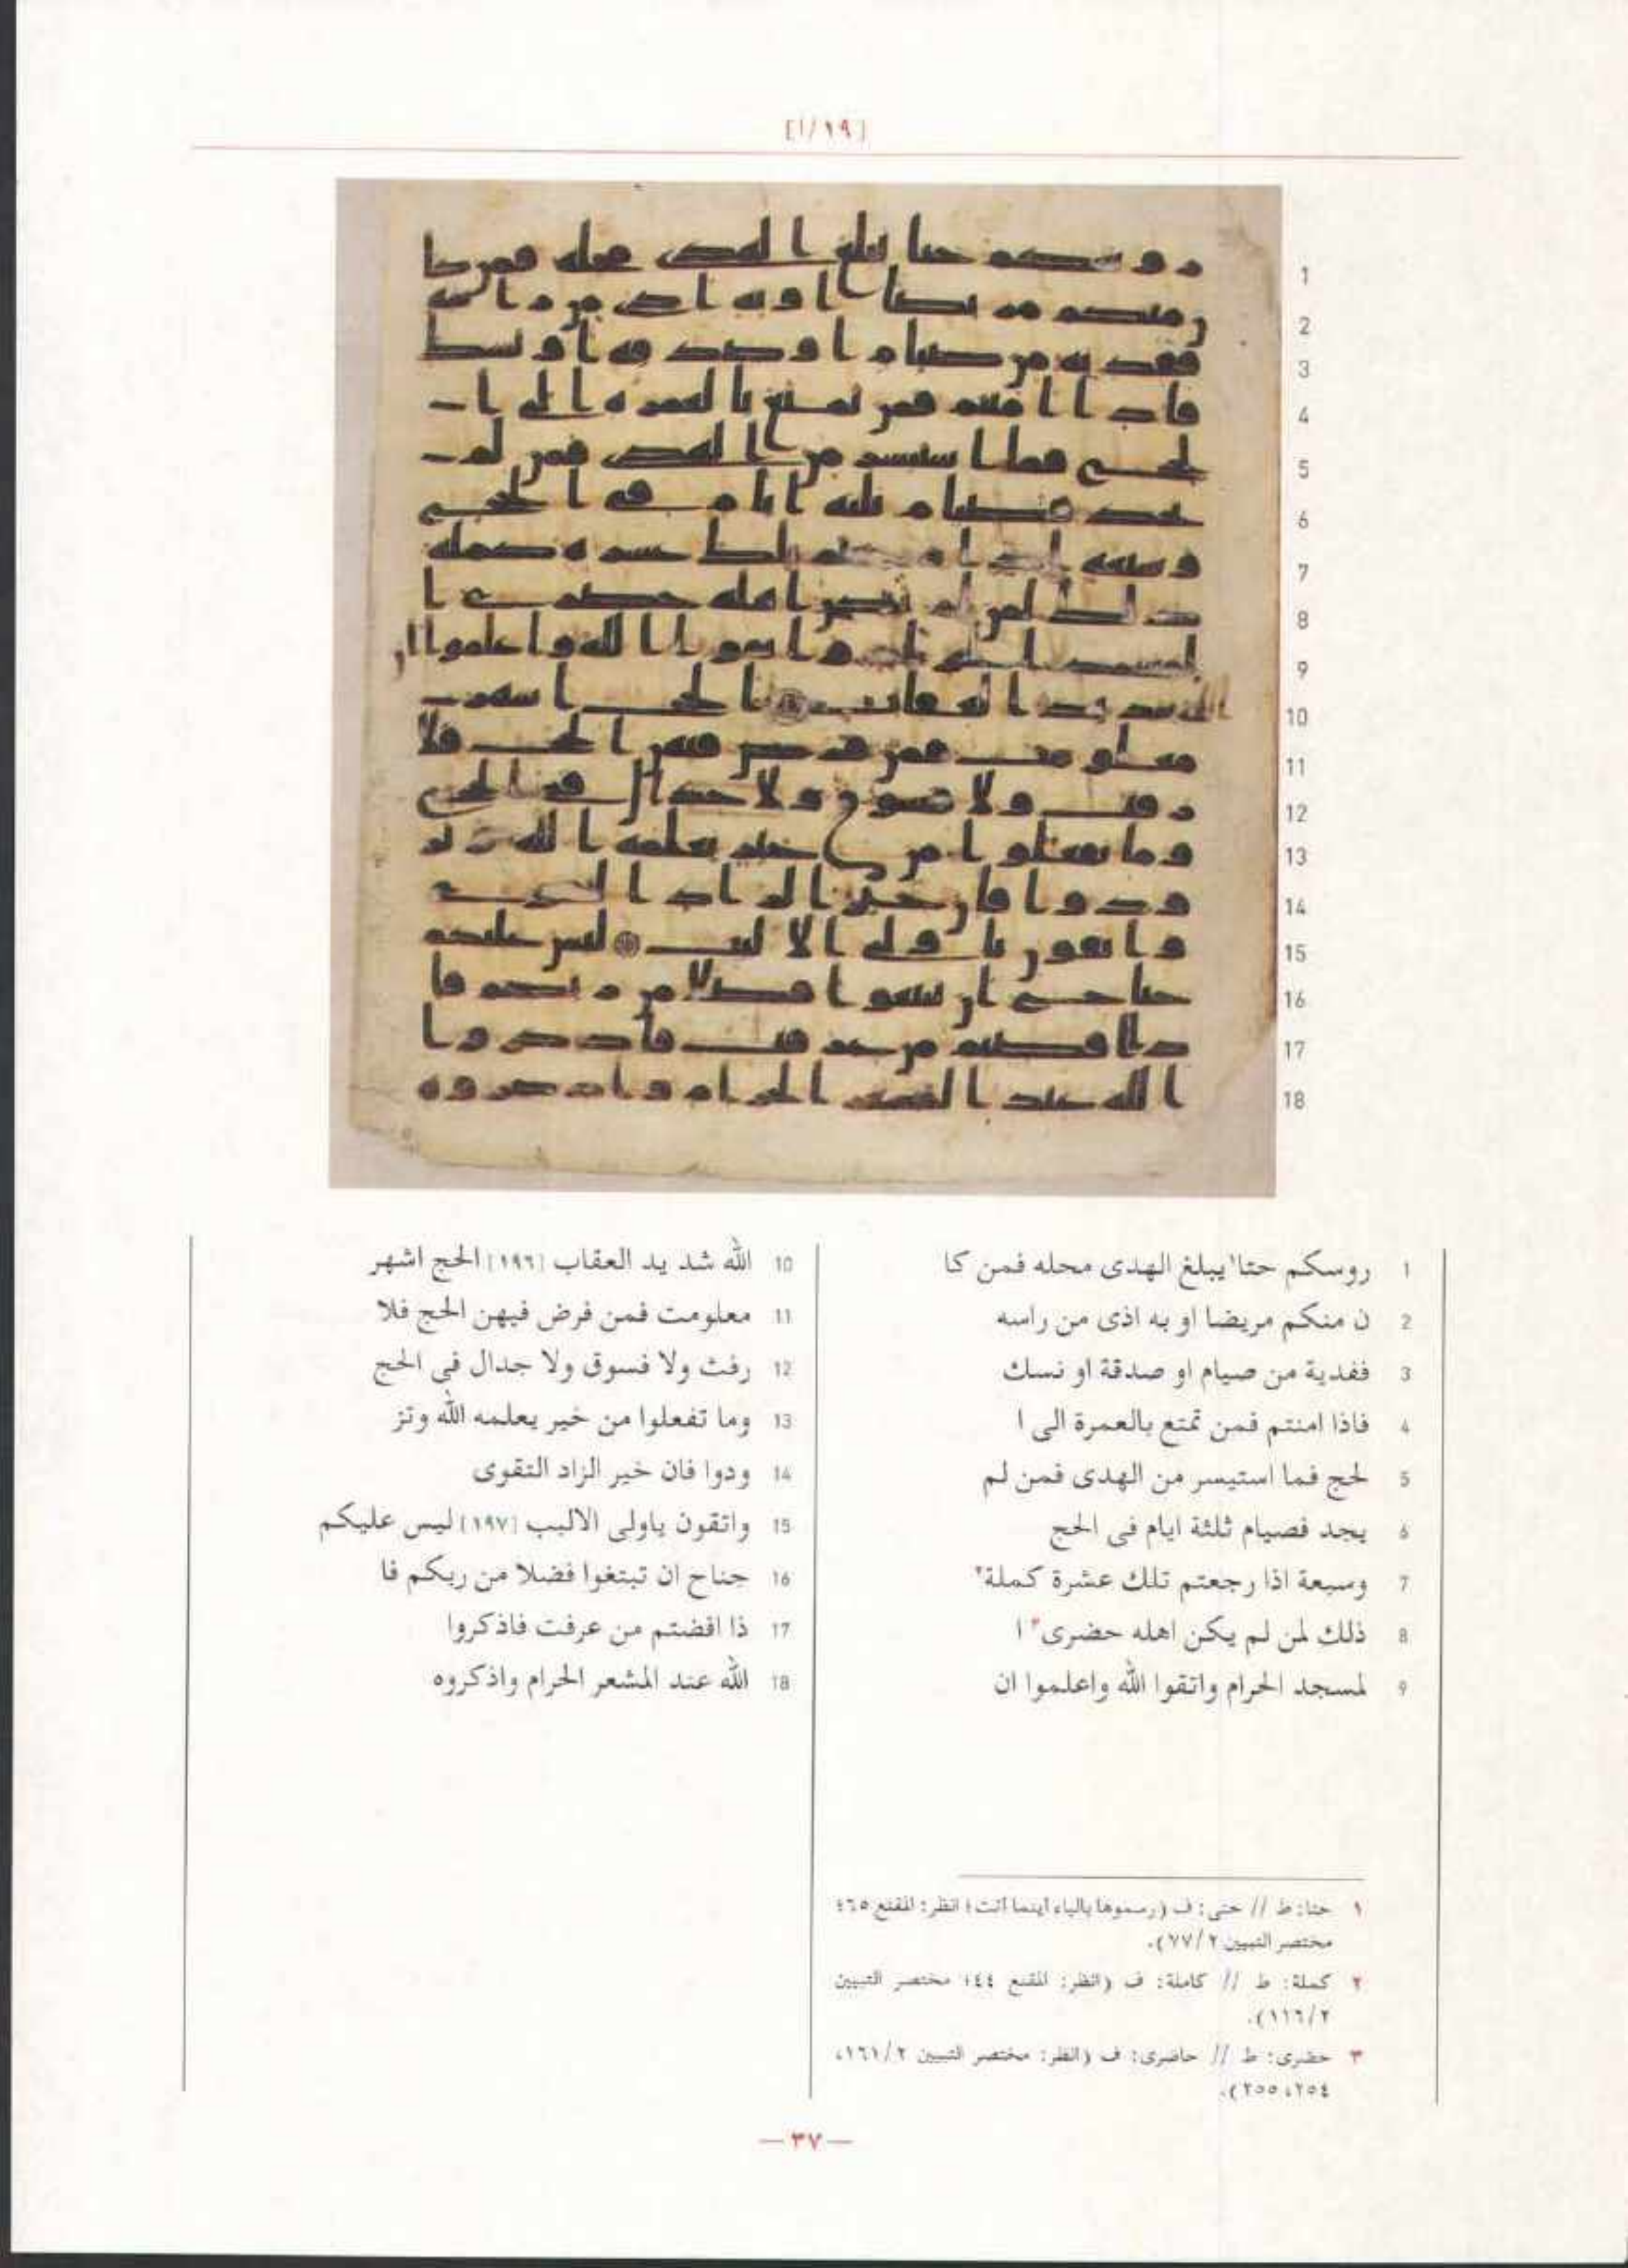 [١٩/أ]
1
2
3
4
5
6
7
8
9
10
11
12
13
14
15
16
17
18
1 روسكم حتا١ يبلغ الهدى محله فمن كا
2 ن منكم مريضا او به اذى من راسه
3 ففدية من صيام او صدقة او نسك
4 فاذا امنتم فمن تمتع بالعمرة الى ا
5 لحج فما استيسر من الهدى فمن لم
6 يجد فصيام ثلثة ايام فى الحج
7 وسبعة اذا رجعتم تلك عشرة كملة٢
8 ذلك لمن لم يكن اهله حضرى٣ ا
9 لمسجد الحرام واتقوا الله واعلموا ان
10 الله شد يد العقاب [١٩٦] الحج اشهر
11 معلومت فمن فرض فيهن الحج فلا
12 رفث ولا فسوق ولا جدال فى الحج
13 وما تفعلوا من خير يعلمه الله وتز
14 ودوا فان خير الزاد التقوى
15 واتقون ياولى الالبب [١٩٧] ليس عليكم
16 جناح ان تبتغوا فضلا من ربكم فا
17 ذا افضتم من عرفت فاذكروا
18 الله عند المشعر الحرام واذكروه
١ حتا: ط // حتى: ف (رسموها بالياء أينما أتت؛ انظر: المقنع ٦٥؛
مختصر التبيين ٧٧/٢).
٢ كملة: ط // كاملة: ف (انظر: المقنع ٤٤؛ مختصر التبيين
١١٦/٢).
٣ حضرى: ط // حاضرى: ف (انظر: مختصر التبيين ١٦١/٢،
٢٥٤، ٢٥٥).
— ٣٧ —